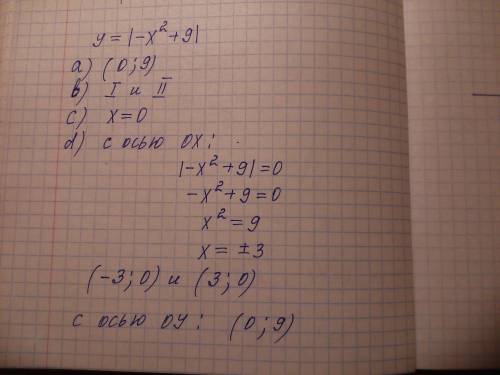 y = |-x² + 9|
a) (0; 9)
b) I и II
c) x = 0
d) с осью OX:
|-x² + 9| = 0
-x² + 9 = 0
x² = 9
x = ±3
(-3; 0) и (3; 0)
с осью OY: (0; 9)